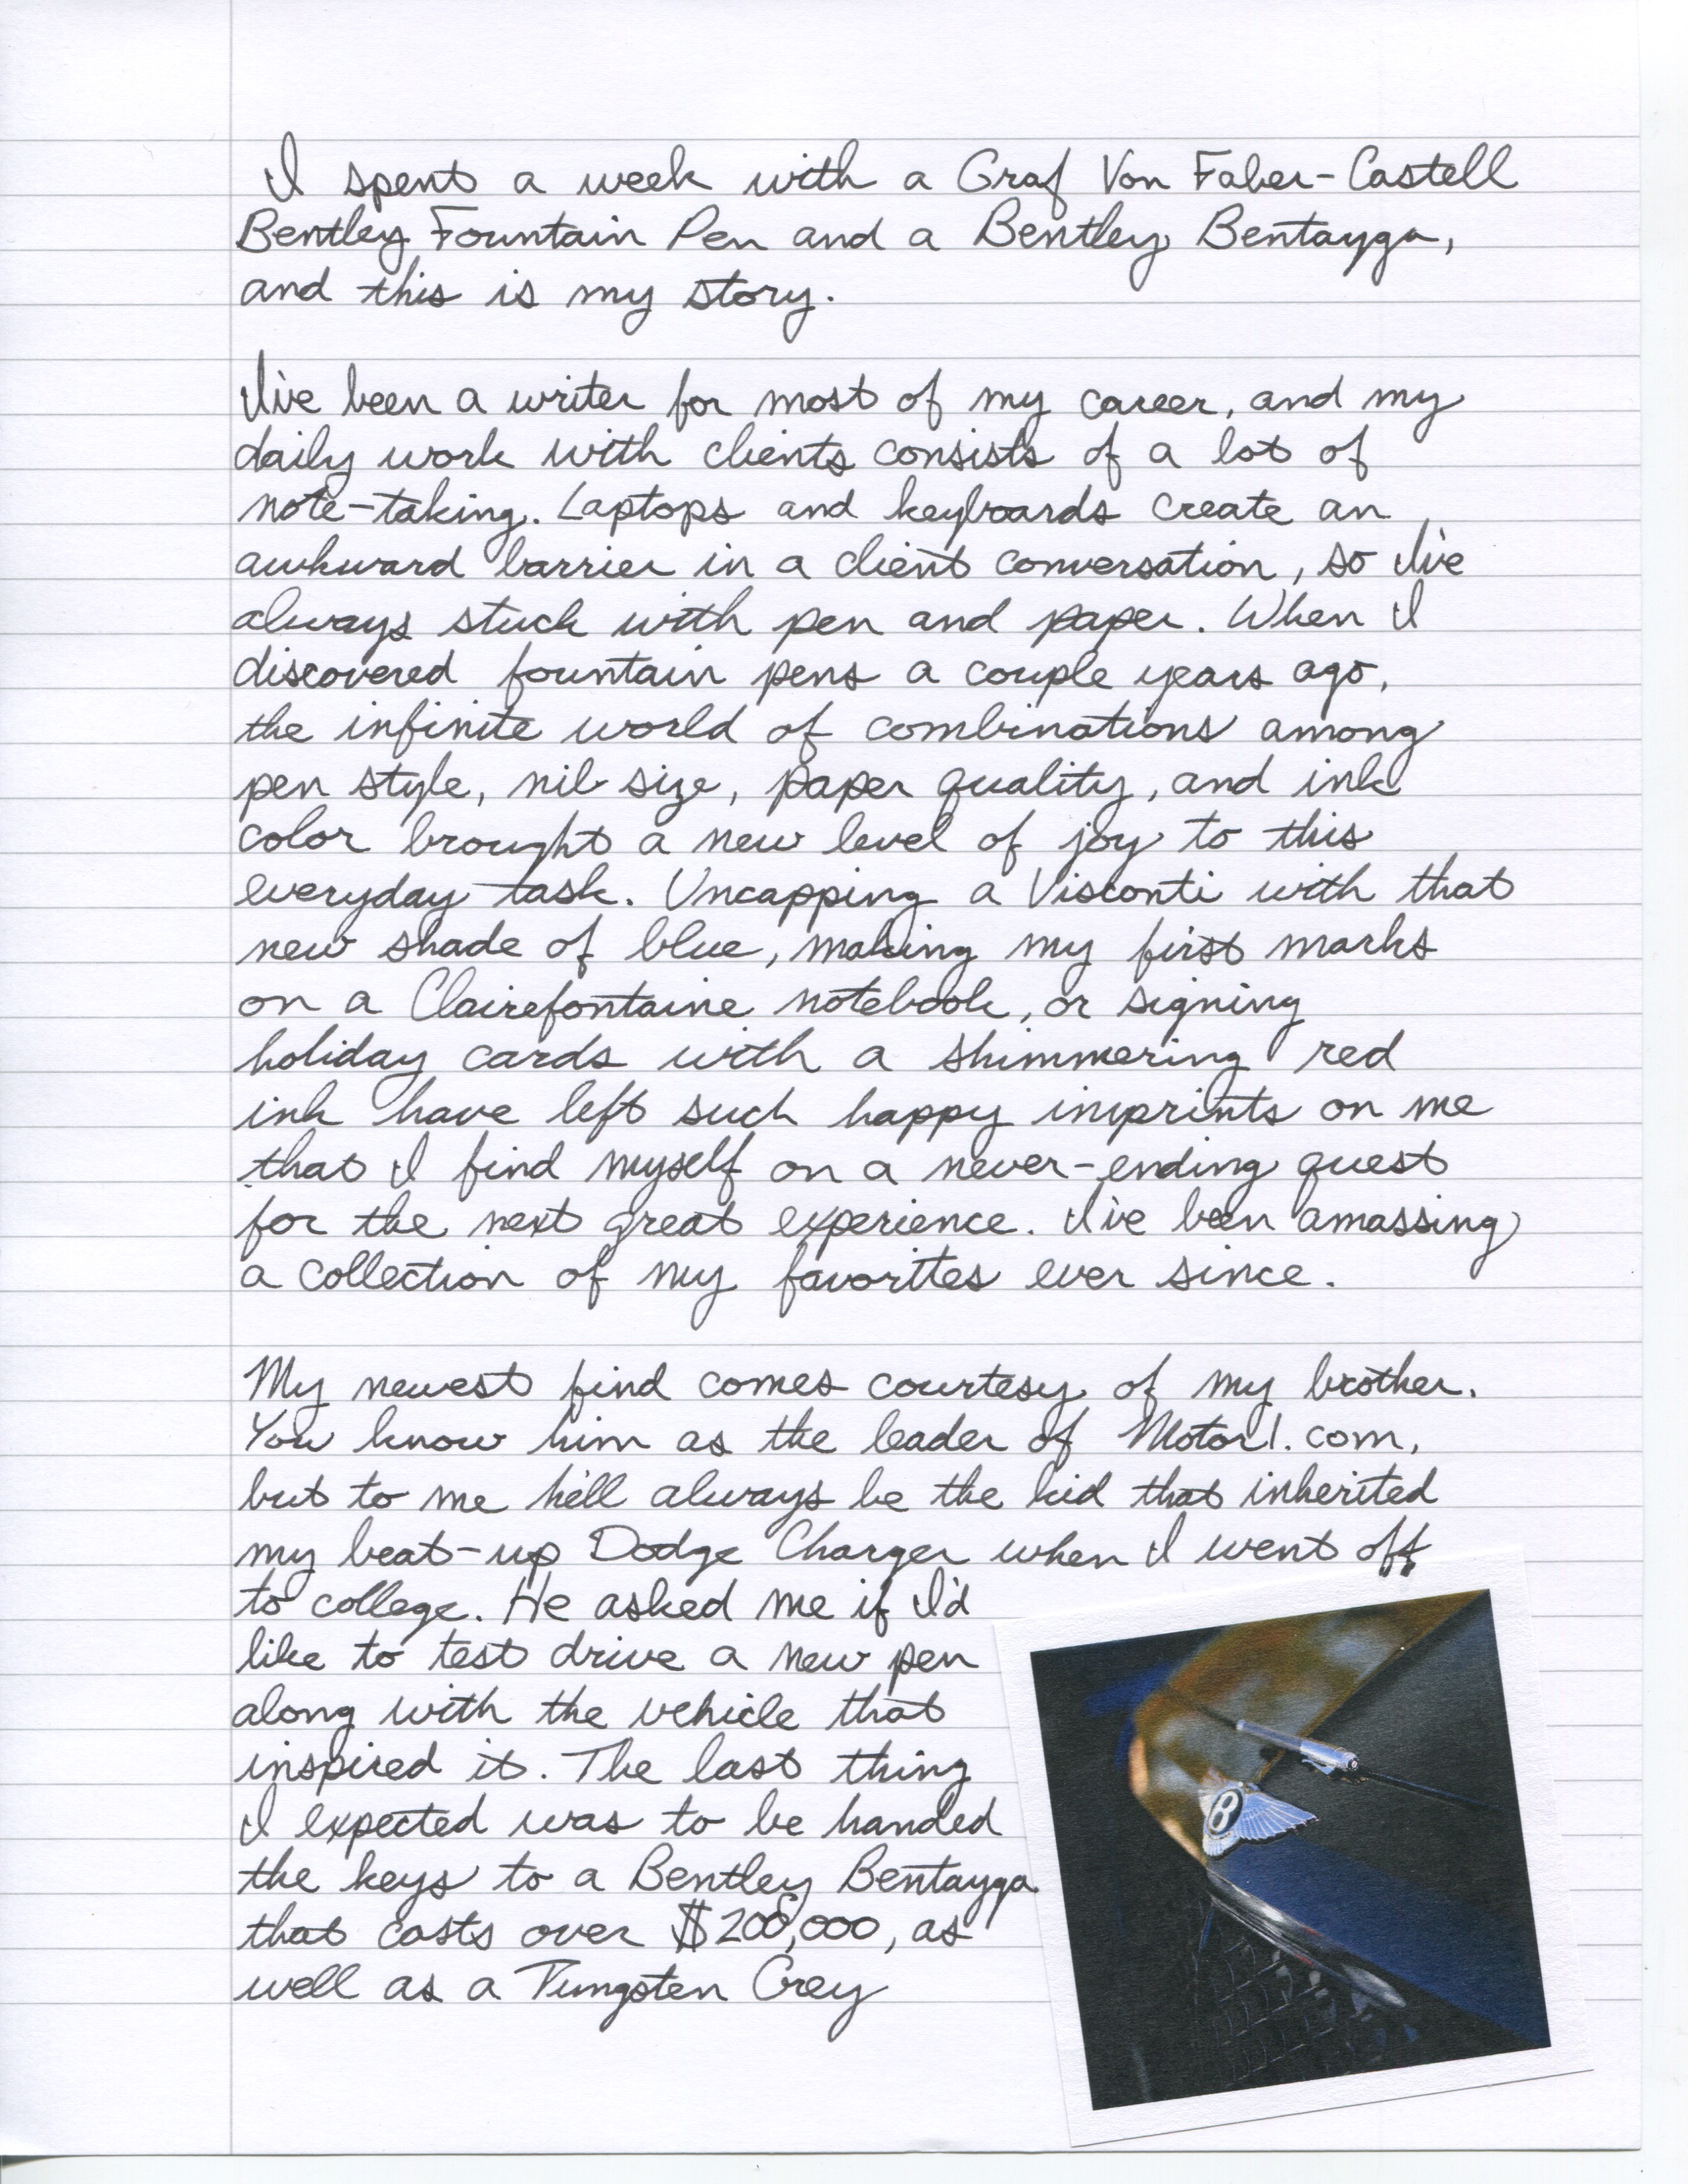 I spent a week with a Graf Von Faber-Castell
Bentley Fountain Pen and a Bentley Bentayga,
and this is my story.
I've been a writer for most of my career, and my
daily work with clients consists of a lot of
note-taking. Laptops and keyboards create an
awkward barrier in a client conversation, so I've
always stuck with pen and paper. When I
discovered fountain pens a couple years ago,
the infinite world of combinations among
pen style, nib size, paper quality, and ink
color brought a new level of joy to this
everyday task. Uncapping a Visconti with that
new shade of blue, making my first marks
on a Clairefontaine notebook, or signing
holiday cards with a shimmering red
ink have left such happy imprints on me
that I find myself on a never-ending quest
for the next great experience. I've been amassing
a collection of my favorites ever since.
My newest find comes courtesy of my brother.
You know him as the leader of Motor1.com,
but to me he'll always be the kid that inherited
my beat-up Dodge Charger when I went off
to college. He asked me if I'd
like to test drive a new pen
along with the vehicle that
inspired it. The last thing
I expected was to be handed
the keys to a Bentley Bentayga
that costs over $200,000, as
well as a Tungsten Grey
B